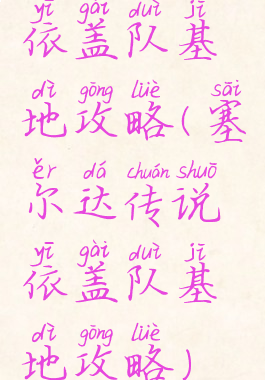 yī gài duì jī
依盖队基
dì gōng lüè sāi
地攻略(塞
ěr dá chuán shuō
尔达传说
yī gài duì jī
依盖队基
dì gōng lüè
地攻略)